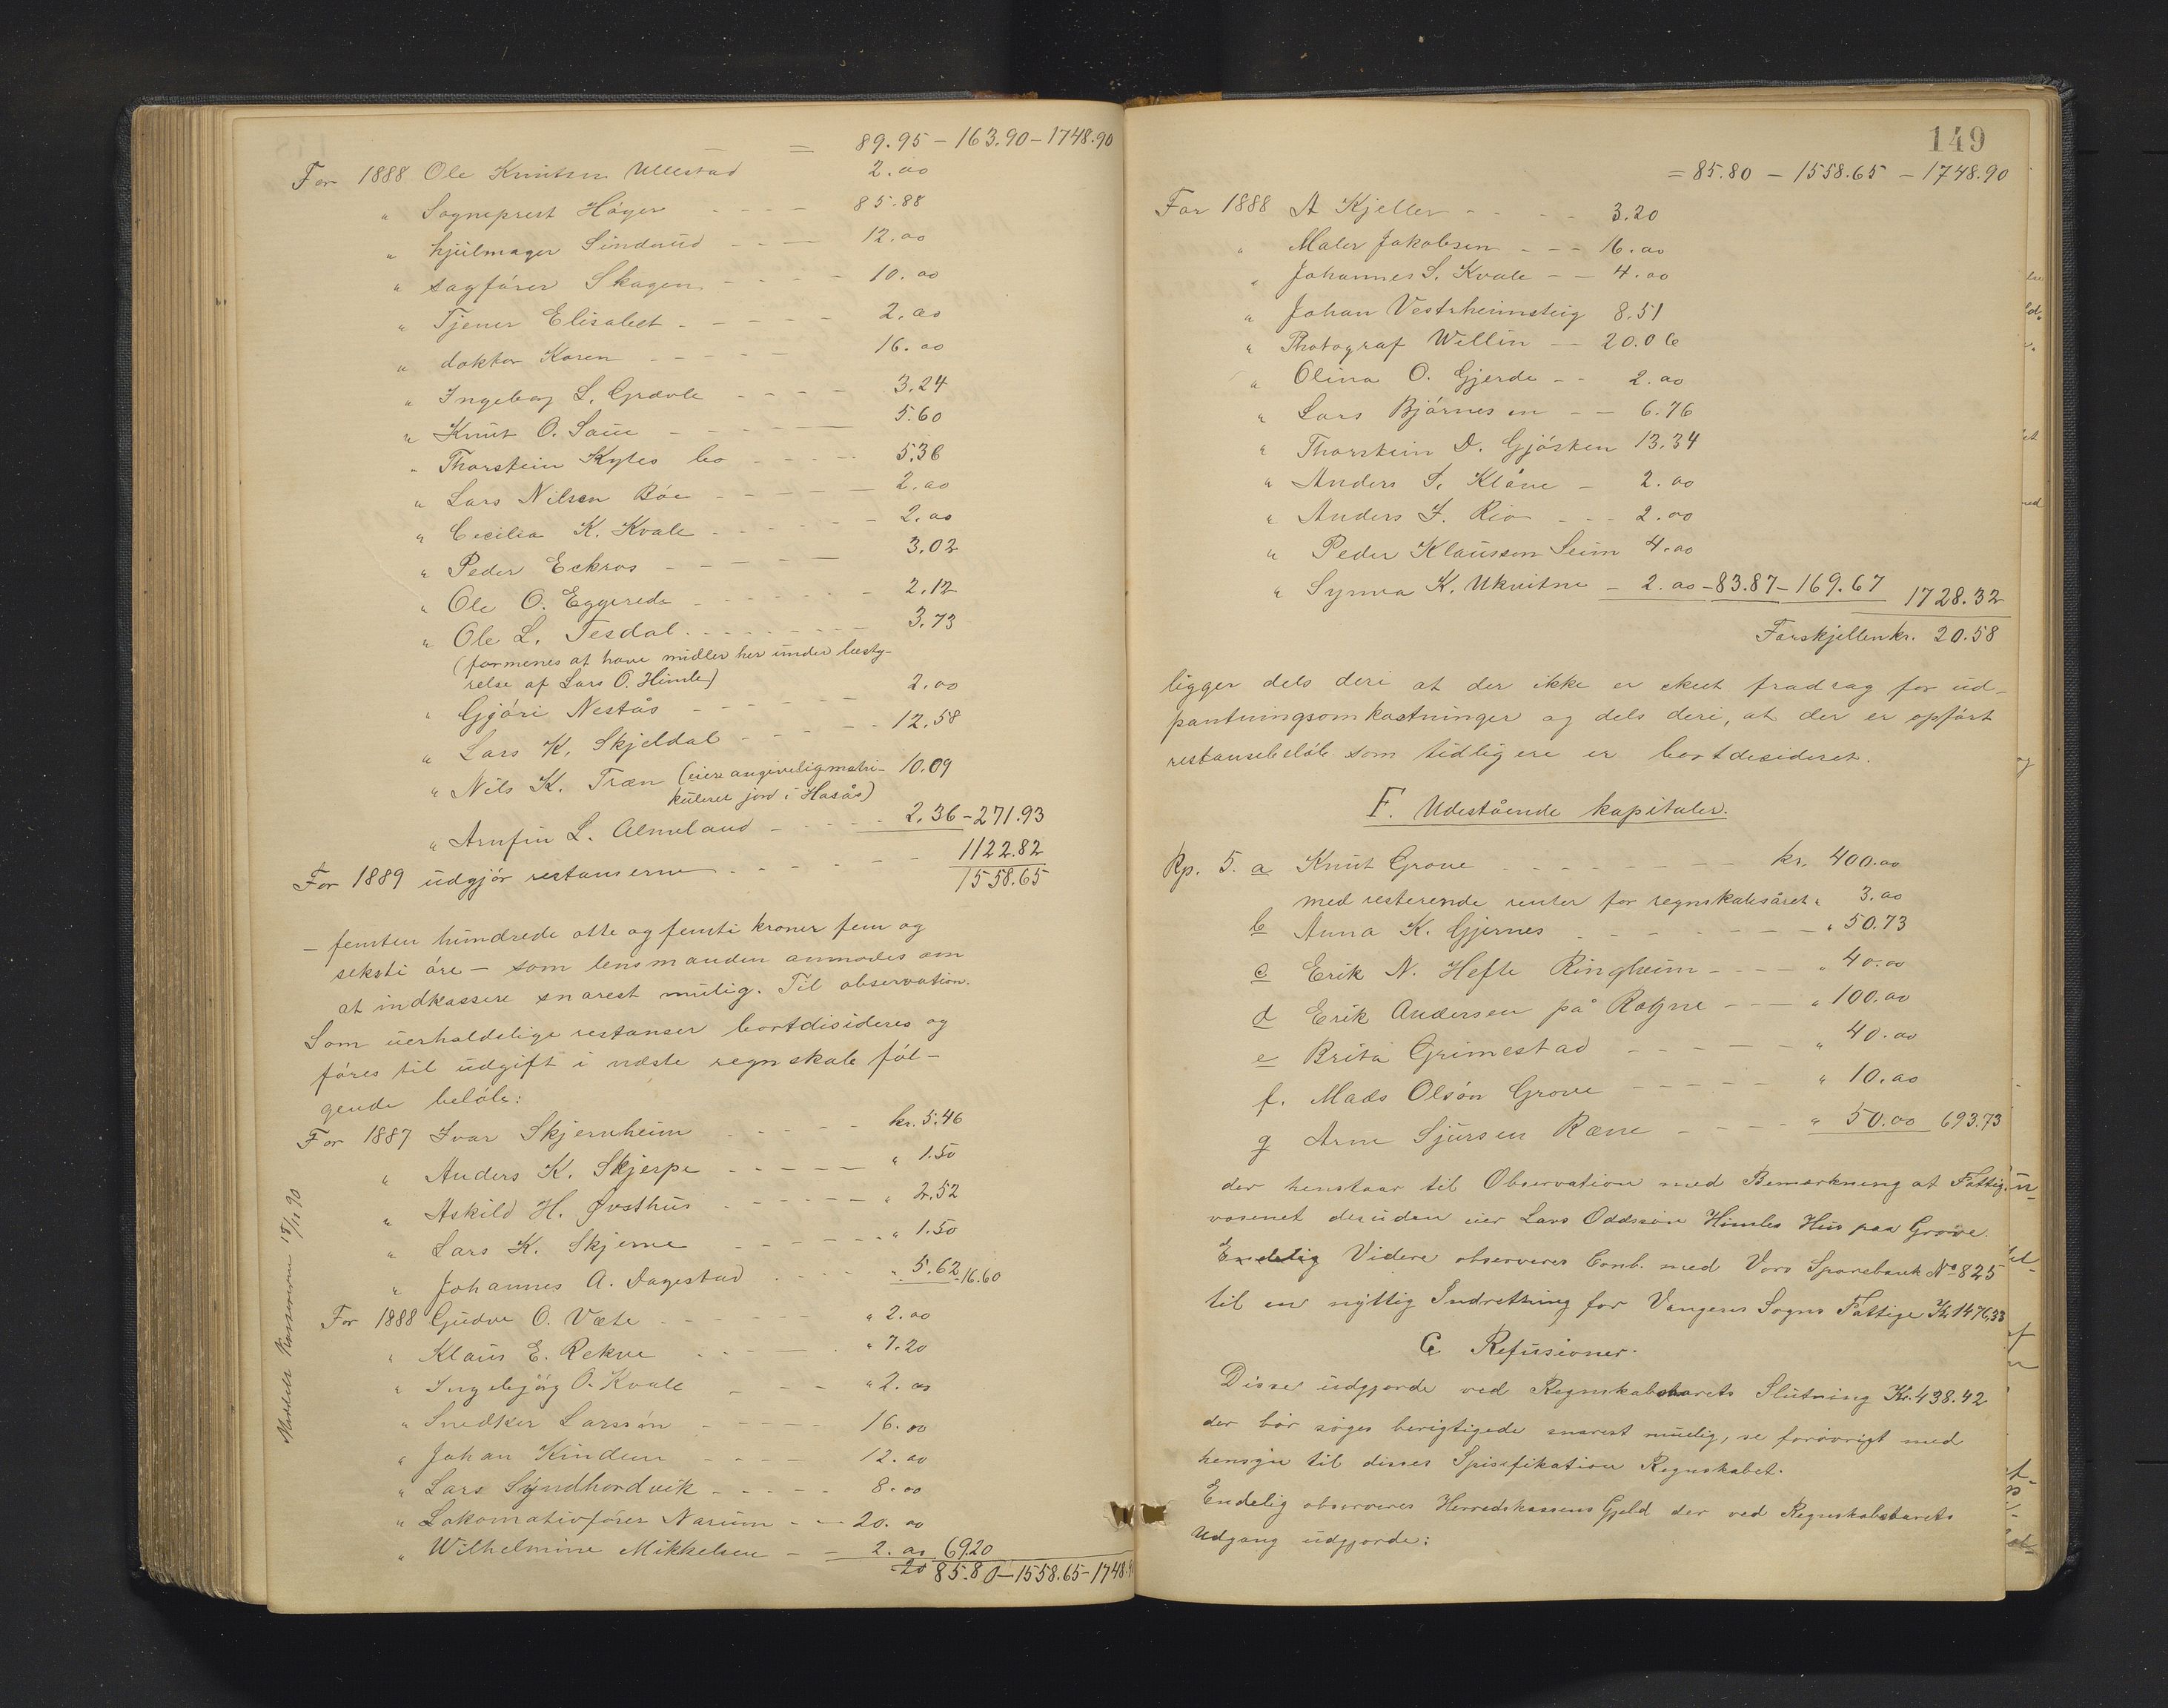 = 89.95 - 163.90 - 1748.90
For 1888 Ole Knutsen Ullestad 2.00
" Sogneprest Höyer - - - - 85.88
" hjulmager Sinderud - - - 12.00
" sagförer Skagen - - - - 10.00
" Tjener Elisabet - - - - - 2.00
" doktor Koren - - - - - 16.00
" Ingeborg L. Grövle - - - - 3.24
" Knut O. Saue - - - - - 5.60
" Thorstein Kytes bo - - - - 5.36
" Lars Nilsen Böe - - - - - 2.00
" Cecilia K. Kvale - - - - - 2.00
" Peder Eckros - - - - - 3.02
" Ole O. Eggerede - - - - - - 2.12
" Ole L. Tesdal - - - - - - - 3.73
(formenes at have midler her under besty-
relse af Lars O. Himle)
" Gjöri Nestås - - - - - - 2.00
" Lars K. Skjeldal - - - - - 12.58
" Nils K. Træn (eier angivelig matri- 10.09
kuleret jord i Hasås)
" Arnfin L. Almeland - - - - - 2.36 - 271.93
For 1889 udgjör restanserne - - - - - 1122.82
1558.65
- femten hundrede otte og femti kroner fem og
seksti öre - som lensmanden anmodes om
at indkassere snarest mulig. Til observation.
Som uerholdelige restanser bortdisideres og
föres til udgift i næste regnskab föl-
gende belöb:
For 1887 Ivar Skjernheim - - - - - kr. 5.46
" Anders K. Skjerpe - - - - - " 1.50
" Askild H. Østhus - - - - - " 2.52
" Lars K. Skjerne - - - - - " 1.50
" Johannes A. Dagestad - - - - " 5.62 - 16.60
For 1888 Gudve O. Væte - - - - - - " 2.00
" Klaus E. Rekve - - - - - " 7.20
" Ingebjörg O. Kvale - - - " 2.00
" Snedker Larssön - - - - - 16.00
" Johan Kindem - - - - 12.00
" Lars Syndhordvik - - - - - 8.00
" Lokomotivförer Narum - - - 20.00
" Wilhelmine Mikkelsen - - 2.00 69.20
85.80 - 1558.65 - 1748.90
Meddelt Kassereren 18/12 90
149
= 85.80 - 1558.65 - 1748.90
For 1888 A Kjeller - - - - - 3.20
" Maler Jakobsen - - - 16.00
" Johannes S. Kvale - - 4.00
" Johan Vestrheimsteig 8.51
" Photograf Wellin - - 20.06
" Olina O. Gjerde - - 2.00
" Lars Björnesen - - 6.76
" Thorstein D. Gjösken 13.34
" Anders S. Klåne - 2.00
" Anders I. Rio - - - 2.00
" Peder Klausson Seim 4.00
" Synva K. Ukvitne - 2.00 - 83.87 - 169.67 1728.32
Forskjellen kr. 20.58
ligger dels deri at der ikke er skeet fradrag for ud-
pantningsomkostninger og dels deri, at der er opfört
restansebelöb som tidligere er bortdesideret.
F. Udestående kapitaler.
Rp. 5. a Knut Grove - - - - - - - kr. 400.00
med resterende renter for regnskabsåret " 3.00
b Anna K. Gjernes - - - - - - - " 50.73
c Erik N. Hefte Ringheim - - - - " 40.00
d Erik Andersen på Rogne - - - " 100.00
e Brita Grimestad - - - - - " 40.00
f. Mads Olsön Grove - - - - - " 10.00
g Arne Sjursen Ræne - - - - " 50.00 693.73
der henstaar til Observation med Bemærkning at Fattig-
væsenet desuden eier Lars Oddssøn Himles Hus paa Grove.
Endelig Videre observeres Conb. med Voss Sparebank No 825
til en nyttig Indretning for Vangens Sogns Fattige Kr 1476,33
G Refusioner.
Disse udgjorde ved Regnskabsaarets Slutning Kr. 438.42
der bör söges berigtigede snarest muelig, se forövrigt med
hensyn til disses Spisifikation Regnskabet.
Endelig observeres Herredskassens Gjeld der ved Regnskabsaarets
Udgang udgjorde: